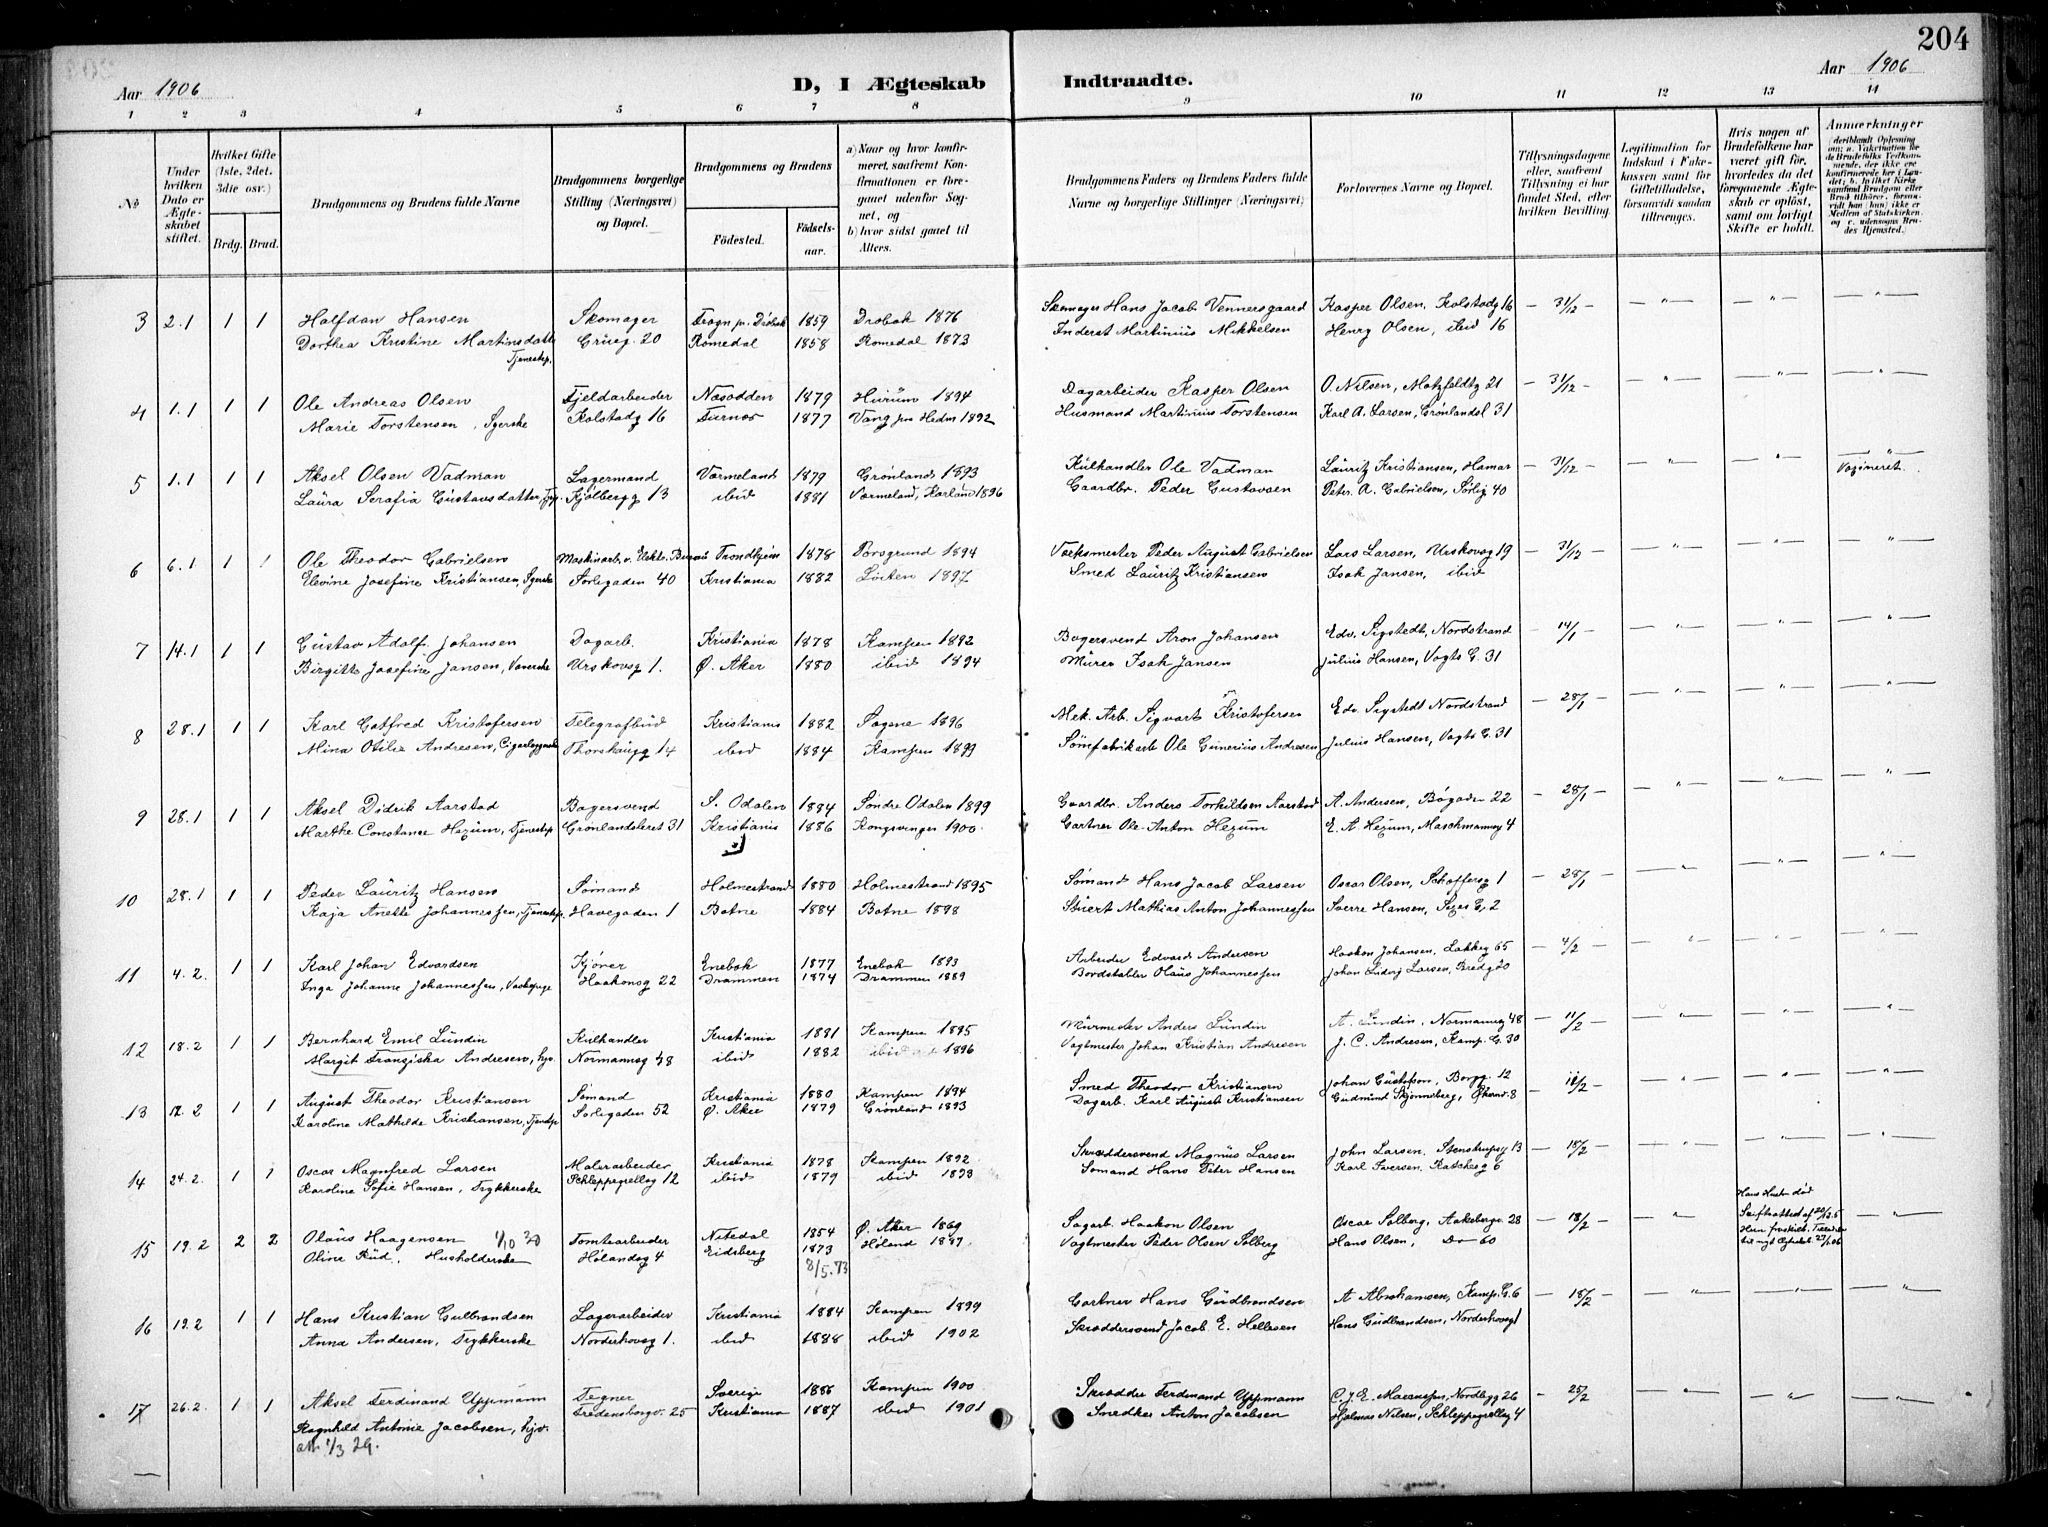 204
Aar 1906
D, I Ægteskab
Indtraadte.
Aar 1906
1 2 3 4 5 6 7 8 9 10 11 12 13 14
No
Under hvilken Dato er Ægteskabet stiftet.
Hvilket Gifte (1ste, 2det, 3die osv.)
Brdg. Brud.
Brudgommens og Brudens fulde Navne
Brudgommens borgerlige Stilling (Næringsvei) og Bopæl.
Brudgommens og Brudens
Födested.
Födselsaar.
a) Naar og hvor konfirmeret, saafremt Konfirmationen er foregaaet udenfor Sognet, og
b) hvor sidst gaaet til Alters.
Brudgommens Faders og Brudens Faders fulde Navne og borgerlige Stillinger (Næringsvei)
Forlovernes Navne og Bopæl.
Tillysningsdagene eller, saafremt Tillysning ei har fundet Sted, efter hvilken Bevilling.
Legitimation for Indskud i Enkekassen samt for Giftetilladelse, forsaavidt saadan tiltrænges.
Hvis nogen af Brudefolkene har været gift før, hvorledes da det foregaaende Ægteskab er opløst, samt om lovligt Skifte er holdt.
Anmærkninger
3 2.1 1 1 Halfdan Hansen Skomager Frogn pr. Dröbak 1859 Drobak 1876 Skomager Hans Jacob Vennersgaard Kasper Olsen, Kolstadg 16 — 31/12 — — " — — " — — " —
Dorthea Kristine Martinsdatter Grüeg. 20 Romedal 1858 Romedal 1873 Inderst Martinius Mikkelsen Henry Olsen, ibid 16
Tjenestep.
4 1.1 1 1 Ole Andreas Olsen Fjeldarbeider Nesodden 1879 Hürum 1894 Dagarbeider Kasper Olsen O. Nilsen, Motzfeldtg 21 — 31/12 — — " — — " — — " —
Marie Torstensen, Syerske Kolstadg 16 Furnes 1877 Vang paa Hedm 1892 Husmand Martinius Torstensen Karl A. Larsen, Grønlandsl 31
5 1.1 1 1 Aksel Olsen Vadman Lagermand Vermeland 1879 Grønland 1893 Kulhandler Ole Vadman Lauritz Kristiansen, Hamar — 31/12 — — " — — " — — " —
Laura Serafia Gustavsdatter Kjølbergg 13 ibid 1881 1896 Gaardbr. Peder Gustavsen Peter A. Gabrielsen, Sørlig 40 Vaxineret.
6 6.1 1 1 Ole Theodor Gabrielsen Trondhjem 1878 Porsgrund 1894 Værksmester Peder August Gabrielsen Lars Larsen, Urskovsg 19 — 31/12 — — " — — " — — " —
Elevine Josefine Kristiansen, Syerske Sørlegaden 40 Kristiania 1882 Løiten 1897 Smed Lauritz Kristiansen Isak Jansen, ibid
7 14.1 1 1 Gustav Adolf Johansen Dagarb. Kristiania 1878 Kampen 1892 Bagersvend Aron Johansen Edv. Sigstedt, Nordstrand — 14/1 — — " — — " — — " —
Birgitte Josefine Jansen, Væverske Urskovsg 1. Ø. Aker 1880 ibid 1894 Mürer Isak Jansen Julius Hansen, Vogts G. 31
8 28.1 1 1 Karl Gotfred Kristofersen Telegrafbud Kristiania 1882 Sagene 1896 Mek. Arb. Sigvart Kristofersen Edv. Sigstedt Nordstrand — 28/1 — — " — — " — — " —
Mina Otilie Andresen, Thorshaugg 14 ibid 1884 Kampen 1899 Sømfabrikarb Ole Gunerius Andresen Julius Hansen, Vogts G. 31
9 28.1 1 1 Aksel Didrik Aarstad Bagersvend S. Odalen 1884 Søndre Odalen 1899 Gaardbr. Anders Torkildsen Aarstad A. Andersen, Bøgaden 22 — 28/1 — — " — — " — — " —
Marthe Constanse Hexum, Tjenestep Grønlandsleret 31 Kristiania 1886 Kongsvinger 1900. Gartner Ole Anton Hexum E. A. Hexum, Maschmannsg 4
10 28.1 1 1 Peder Lauritz Hansen Sømand Holmestrand 1880 Holmestrand 1895 Sømand Hans Jacob Larsen Oscar Olsen, Schøffersg 1 — 28/1 — — " — — " — — " —
Kaja Anette Johannessen, Tjenestep. Havegaden 1 Botne 1884 Botne 1898 Stuert Mathias Anton Johannessen Sverre Hansen, 2
11 4.2. 1 1 Karl Johan Edvardsen Kjører Enebak 1877 Enebak 1893 Arbeider Edvard Andersen Haakon Johansen, Lakkeg 65 — 4/2 — — " — — " — — " —
Inga Johanne Johannessen, Vaskepige Haakonsg 22 Drammen 1874 Drammen 1889 Bordstabler Olaus Johannessen Johan Ludvig Larsen,
12 18.2 1 1 Bernhard Emil Lundin Kulhandler Kristiania 1881 Kampen 1895 Murmester Anders Lundin A. Lundin, Normannsg 48 — 11/2 — — " — — " — — " —
Margit Franziska Andresen, hjv. Normannsg 48 ibid 1882 ibid 1896 Vagtmester Johan Kristian Andresen J. C. Andresen, Kamp. G. 30
13 12.2 1 1 August Theodor Kristiansen Sømand Kristiania 1880 Kampen 1894 Smed Theodor Kristiansen Johan Gustafson, Borgg. 12 — 11/2 — — " — — " — — " —
Karoline Mathilde Kristiansen, Tjenestp Sørlegaden 52 Ø. Aker 1879 Grønland 1893 Dagarb. Karl August Kristiansen Gudmund Skjønnsberg, Økernv. 8
14 24.2. 1 1 Oscar Magnfred Larsen Malerarbeider Kristiania 1878 Kampen 1892 Skræddersvend Magnus Larsen John Larsen, Stenstrupsg 13 — 18/2 — — " — — " — — " —
Karoline Sofie Hansen, Trykkerske Schleppegrellsg 12 ibid 1879 ibid 1893 Sømand Hans Peter Hansen Karl Iversen, 6
15 19.2 2 2 Olaus Haagensen 1/10 30 Tomtearbeider Nitedal 1854 Ø. Aker 1869 Sagarb. Haakon Olsen Oscar Solberg, Aakebergv. 28 — 18/2 — — " — Hans Hustru død
Oline Rud, Husholderske Hølandsg 4 Eidsberg 1873 Høland 1887 Vagtmester Peder Olsen Solberg Hans Olsen, Do 60
8/5.73
16 19.2 1 1 Hans Kristian Gulbrandsen Lagerarbeider Kristiania 1884 Kampen 1899 Gartner Hans Gudbrandsen A Abrahamsen, Kamp. G. 6 — 18/2 — — " — — " — — " —
Anna Andersen, Trykkerske Norderhovsg 1. ibid 1888 ibid 1902 Skræddersvend Jacob E. Hellesen Hans Gudbrandsen, Norderhovsg 1
17 26.2. 1 1 Aksel Ferdinand Uppmann Tegner Sverige 1886 Kampen 1900 Skrædder Ferdinand Uppmann C. J. E. Nordbyg 26 — 25/2 — " — — " — — " —
Ragnhild Antonie Jacobsen, hjv. Fredensborgv. 25 Kristiania 1887 ibid 1901 Snedker Anton Jacobsen Hjalmar Nilsen, Schleppegrellsg 4
att 1/3 29.